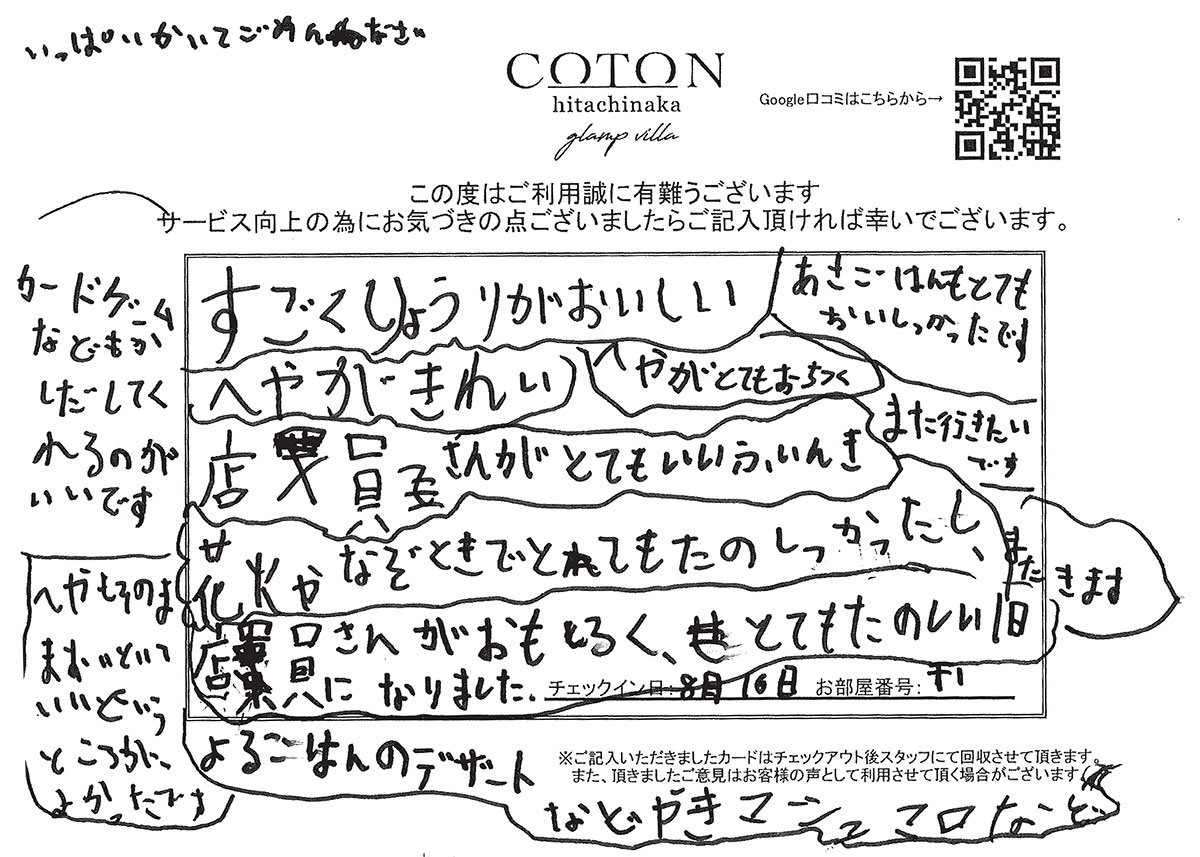 いっぱいかいてごめんねなさい
COTON
hitachinaka
glamp villa
Google口コミはこちらから→
この度はご利用誠に有難うございます
サービス向上の為にお気づきの点ございましたらご記入頂ければ幸いでございます。
カードゲーム
などもか
しだしてく
れるのが
いいです
すごくりょうりがおいしい
あさごはんもとても
おいしっかったです
へやがきれい
へやがとてもおちつく
また行きたい
です
店員さんがとてもいいふいんき
花火やなぞときでとれてもたのしっかったし、
またきます
店員さんがおもしろく、とてもたのしい1日
になりました。
チェックイン日:8月16日 お部屋番号:
へやもそのま
まおいといて
いいという
ところがに、
よかったです
よるごはんのデザート
などやきマシュマロなど
※ご記入いただきましたカードはチェックアウト後スタッフにて回収させて頂きます。
また、頂きましたご意見はお客様の声として利用させて頂く場合がございます。